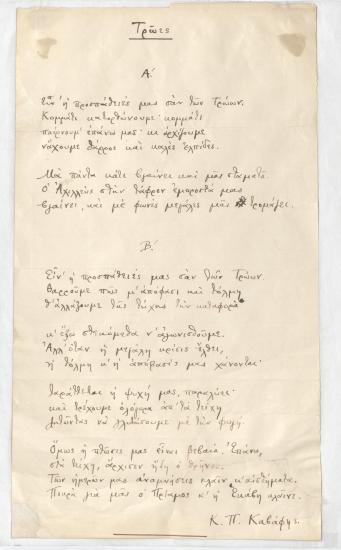 Τρῶες
Α΄
Εἶν' ἡ προσπάθειές μας σὰν τῶν Τρώων.
Κομμάτι κατορθώνουμε· κομμάτι
παίρνουμ' ἐπάνω μας· κι ἀρχίζουμε
νἄχουμε θάρρος καὶ καλὲς ἐλπίδες.
Μὰ πάντα κάτι βγαίνει καὶ μᾶς σταματᾶ.
Ὁ Ἀχιλλεὺς στὴν τάφρον ἐμπροστά μας
βγαίνει καὶ μὲ φωνὲς μεγάλες μᾶς τρομάζει.
Β΄
Εἶν' ἡ προσπάθειές μας σὰν τῶν Τρώων.
Θαρροῦμε πὼς μ' ἀπόφασι καὶ τόλμη
θ' ἀλλάξουμε τῆς τύχης τὴν καταφορὰ
κ' ἔξω στεκόμεθα ν' ἀγωνισθοῦμε.
Ἀλλ' ὅταν ἡ μεγάλη κρίσις ἔλθει,
ἡ τόλμη κ' ἡ ἀπόφασίς μας χάνονται·
ταράττεται ἡ ψυχή μας, παραλύει·
καὶ τρέχουμε ὁλόγυρα ἀπ' τὰ τείχη
ζητῶντας νὰ γλυτώσουμε μὲ τὴν φυγή.
Ὅμως ἡ πτῶσις μας εἶναι βεβαία. Ἐπάνω,
στὰ τείχη, ἄρχισεν ἤδη ὁ θρῆνος.
Τῶν ἡμερῶν μας ἀναμνήσεις κλαῖν κ' αἰσθήματα.
Πικρὰ γιὰ μᾶς ὁ Πρίαμος κ' ἡ Ἑκάβη κλαῖνε.
Κ. Π. Καβάφης.